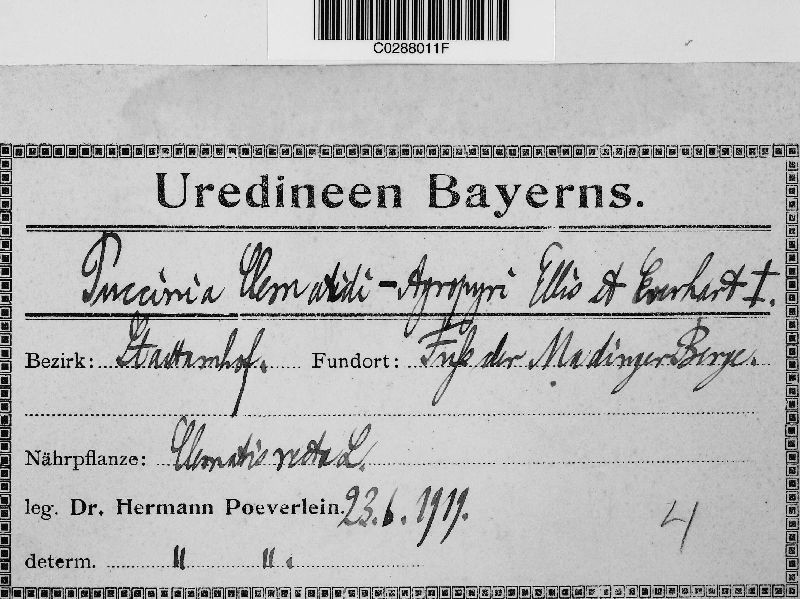 C0288011F
Uredineen Bayerns.
Puccinia Clematidi-Agropyri Ellis et Everhart I.
Bezirk: Stadtamhof. Fundort: Fuß der Madinger Berge.
Nährpflanze: Clematis recta L.
leg. Dr. Hermann Poeverlein. 23.6.1919.
4
determ. " " .